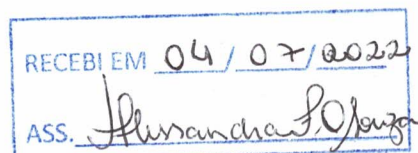 RECEBI EM 04/07/2022
ASS. Alessandra